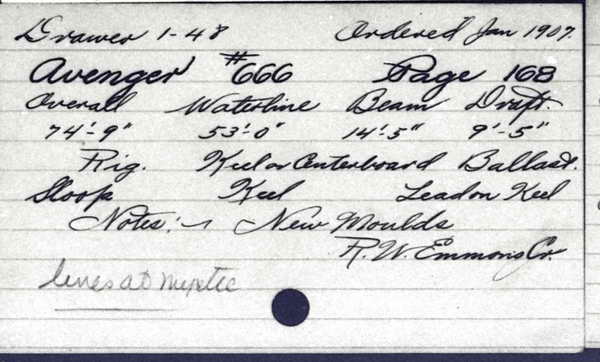 Drawer 1-48 Ordered Jan 1907.
Avenger #666 Page 168
Overall Waterline Beam Draft.
74'-9" 53'-0" 14'-5" 9'-5"
Rig. Keel or Centerboard Ballast.
Sloop Keel Lead on Keel
Notes:- New Moulds
R. W. Emmons Cr.
lines at Mystic